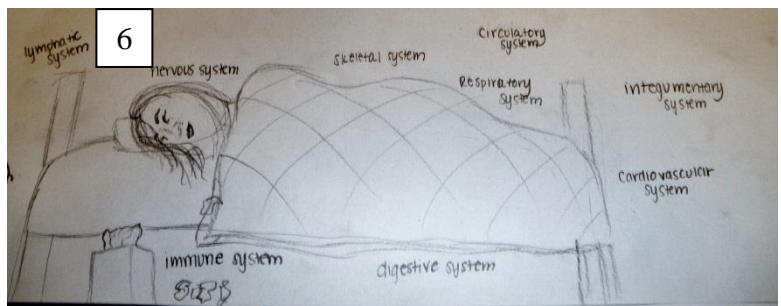 lymphatic
system
6
nervous system
skeletal system
Circulatory
system
Respiratory
system
integumentary
system
Cardiovascular
system
immune system
digestive system